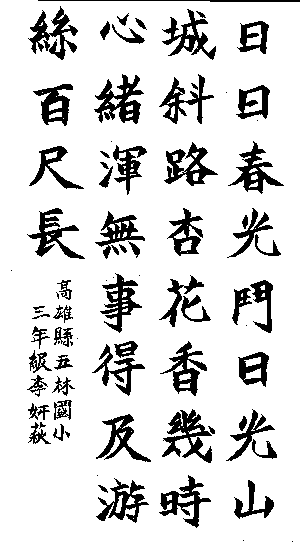 日日春光鬥日光山
城斜路杏花香幾時
心緒渾無事得及游
絲百尺長
高雄縣五林國小
三年級李妍萩